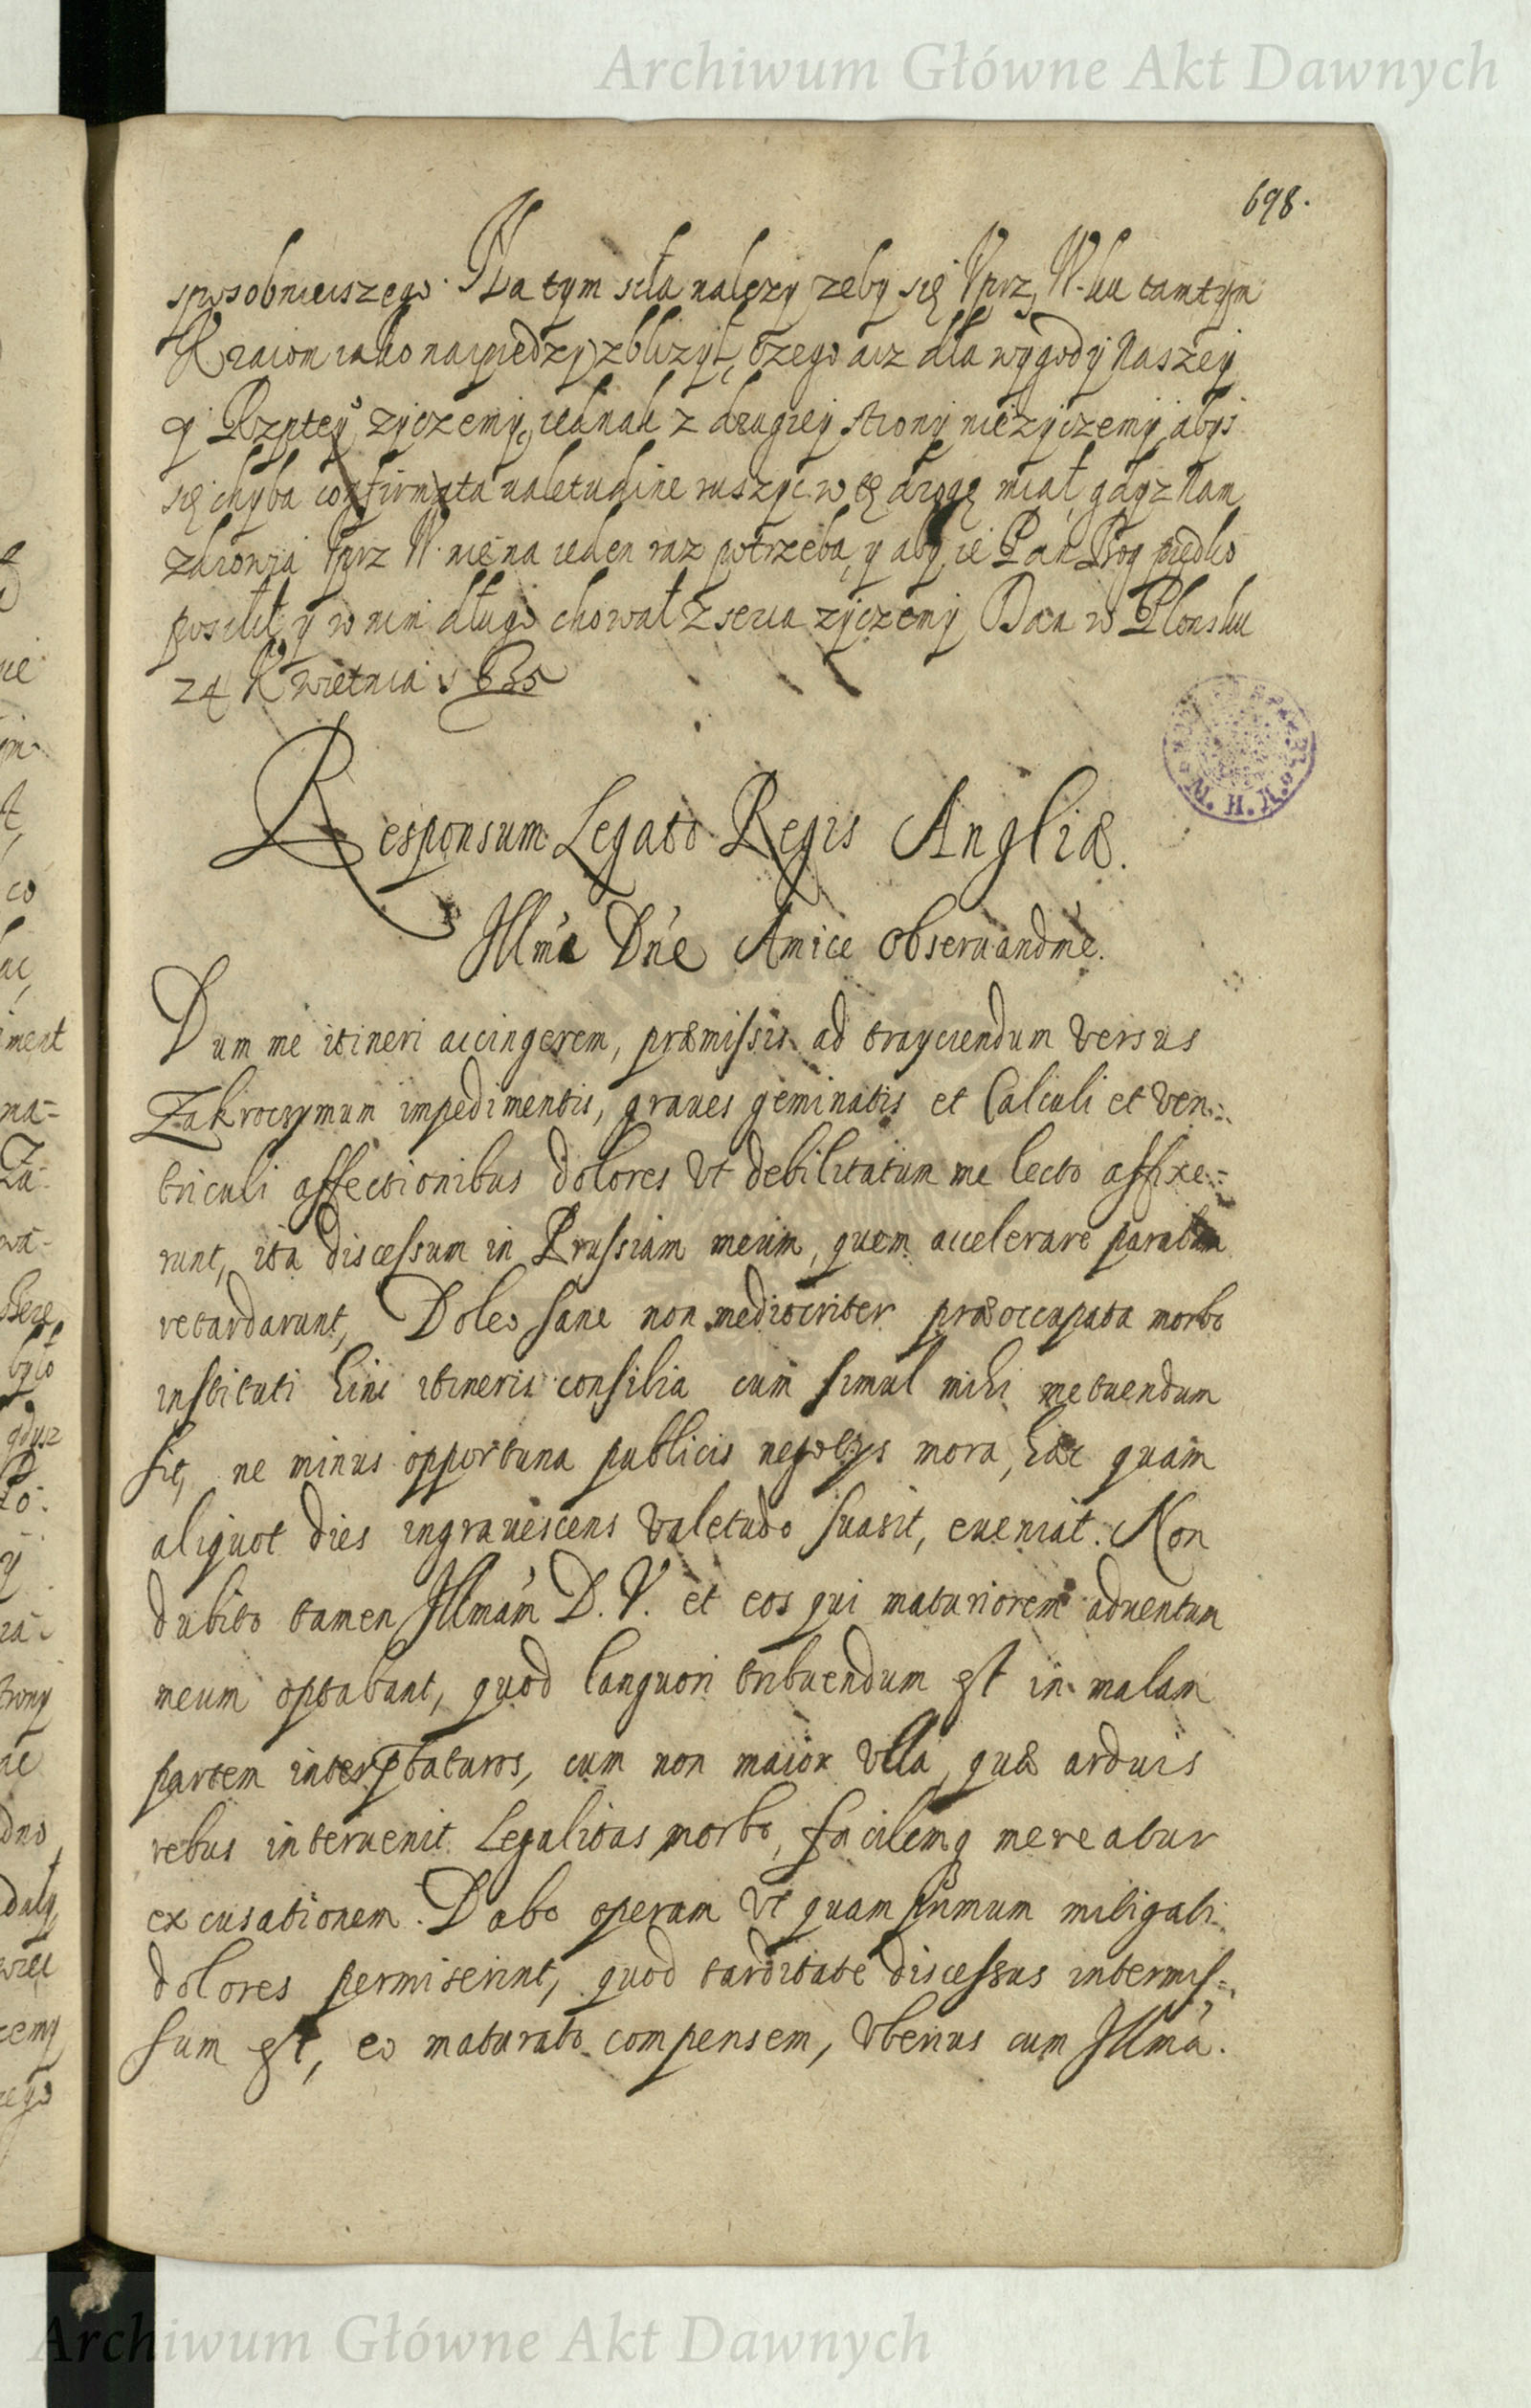 Archiwum Główne Akt Dawnych
698.
sposobnieiszego. Na tym siła nalezy zeby się Vprz. W. ku tamtym
Kraiom iako naipredzy zblizył, czego acz dla wygody Naszey
y Rzptey zyczemy, iednak z drugiey strony nie zyczemy abys
się chyba confirmata valetudine ruszyc w tę drogę miał, gdyz Nam
zdrowia Vprz W. nie na ieden raz potrzeba, y aby ie Pan Bog prędko
posilił y w nim długo chował z serca zyczemy Dan w Plonsku
24 Kwietnia 1635
Responsum Legato Regis Angliæ.
Illme Dne Amice Obseruandme.
Dum me itineri accingerem, præmissis ad trayciendum versus
Zakroczymum impedimentis, graues geminatis et Calculi et Ven=
triculi affectionibus dolores Vt debilitatum me lecto affixe=
runt, ita discessum in Prussiam meum, quem accelerare parabam
retardarunt, Doleo sane non mediocriter præoccupata morbo
instituti huius itineris consilia cum simul mihi metuendum
sit, ne minus opportuna publicis negotys mora, hæc quam
aliquot dies ingrauescens Valetudo suasit, eueniat. Non
dubito tamen Illmam D. V. et eos qui maturiorem aduentum
meum optabant, quod languori tribuendum est in malam
partem interptaturos, cum non maior Vlla, quæ arduis
rebus interuenit Legalitas morbo, facilemq mereatur
excusationem. Dabo operam Vt quam primum mitigati
dolores permiserint, quod tarditate discessus intermis=
sum est, eo maturato compensem, Vberius cum Illma.
Archiwum Główne Akt Dawnych